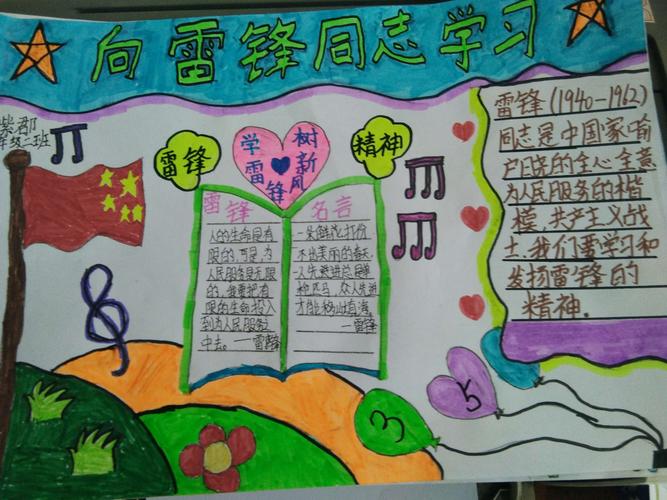 向雷锋同志学习
紫郡
年级二班
雷锋
学雷锋
树新风
精神
雷锋(1940-1962)
同志是中国家喻
户晓的全心全意
为人民服务的楷
模,共产主义战
士,我们要学习和
发扬雷锋的
精神。
雷锋
人的生命是有
限的,可是,为
人民服务是无限
的,我要把有
限的生命投入
到为人民服务
中去。一雷锋
名言
一朵鲜花打扮
不出美丽的春天,
一人先进总是单
枪匹马,众人先进
才能移山填海
一雷锋
3
5